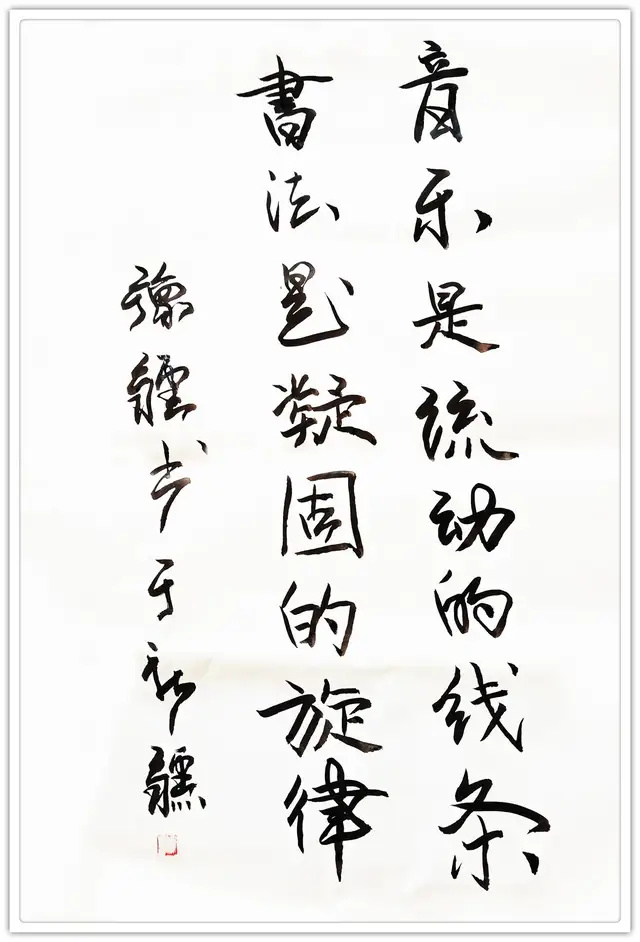 音乐是流动的线条
書法是凝固的旋律
豫疆书于新疆